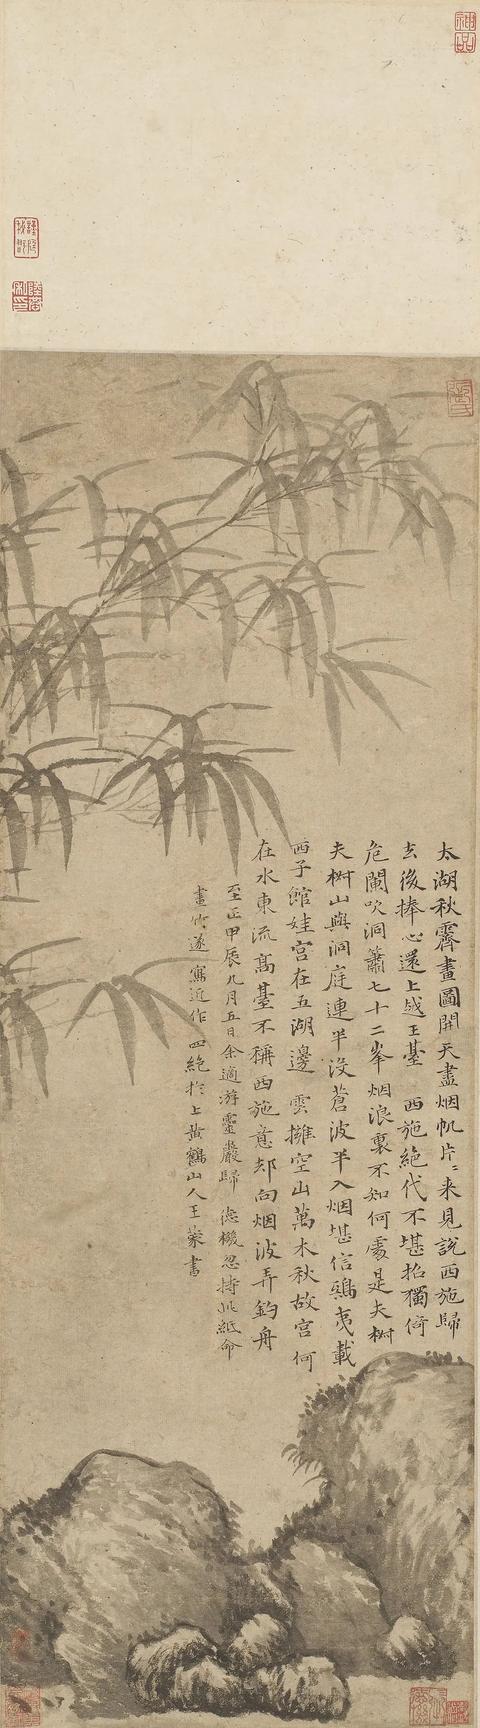 神品
太湖秋霽畫圖開天盡烟帆片〻来見說西施歸
去後捧心還上越王臺　西施絶代不堪招獨倚
危闌吹洞簫七十二峯烟浪裏不知何處是夫椒
夫椒山與洞庭連半没蒼波半入烟堪信鴟夷載
西子館娃宫在五湖邊　雲擁空山萬木秋故宫何
在水東流髙臺不稱西施意却向烟波弄釣舟
至正甲辰九月五日余適游靈巖歸　徳機忽持此紙命
畫竹遂寫近作四絶扵上黄鶴山人王蒙書